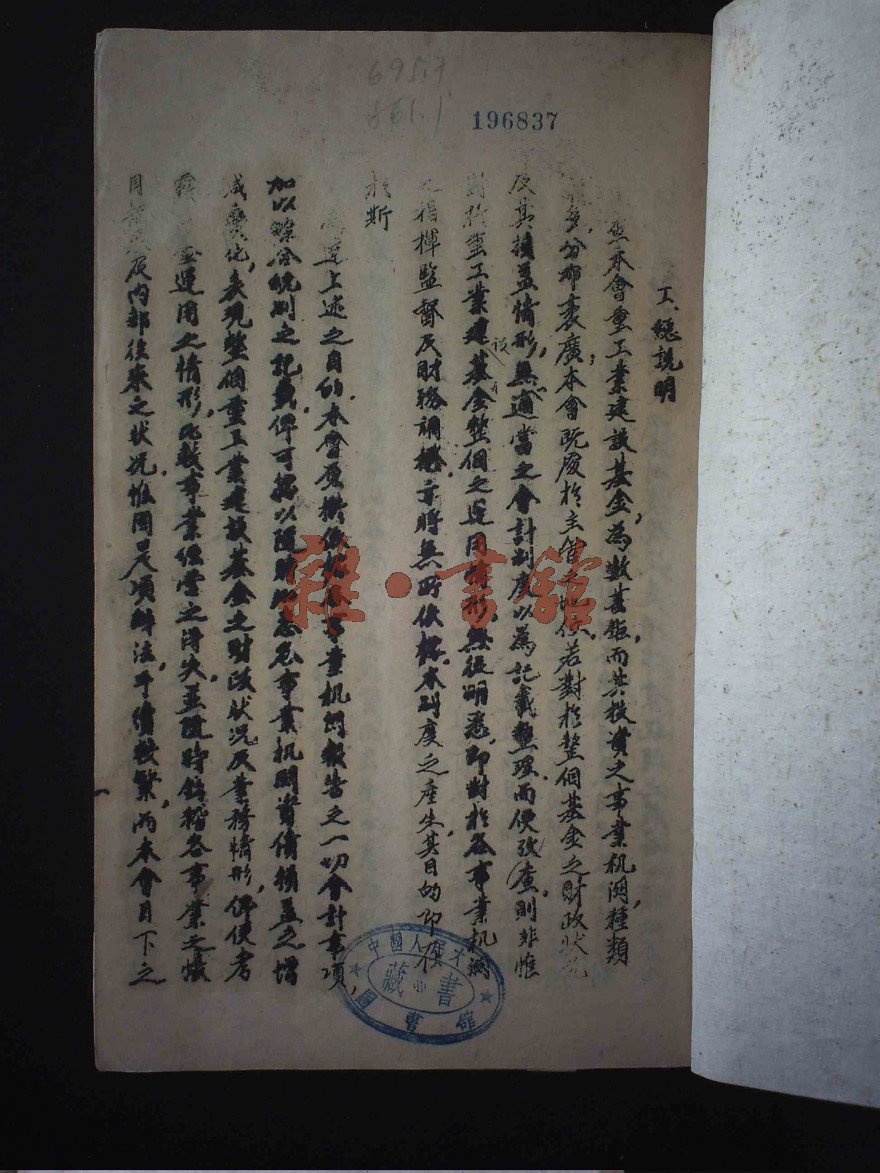 695.7
861.1
196837
工、總說明
查本會重工業建設基金，為數甚鉅，而其投資之事業机関，種類
繁多，分布袤廣，本會既處於主管之地位，若對於整個基金之財政狀況
及其損益情形，無適當之會計制度以為記載整理，而便攷查，則非惟
對於重工業建設基金整個之運用情形，無從明悉，即對於各事業机関
之指揮監督及財務調撥，亦將無所依據，本制度之產生，其目的即
於斯
為達上述之目的，本會應機關報告之一切會計事項，
加以綜合統制之記載，俾可據以隨時各事業机関資債損益之增
減變化，表現整個重工業建設基金之財政狀況及業務情形，俾使考
運用之情形，比較事業經營之得失，並隨時鉤稽各事業之
及內部往來之狀況，惟因是項辦法，手續較繁，而本會目下之
雜·書館
中國人民大
圖書館
藏書